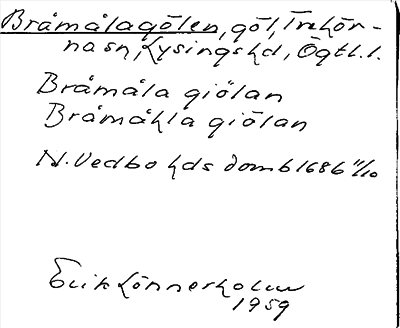 Bråmålagölen, göl, Trehör-
na sn, Lysings hd, Ögtl.l.
Bråmåla giölan
Bråmåhla giölan
N. Vedbo hds domb 1686 11/10
Erik Lönnerholm
1959